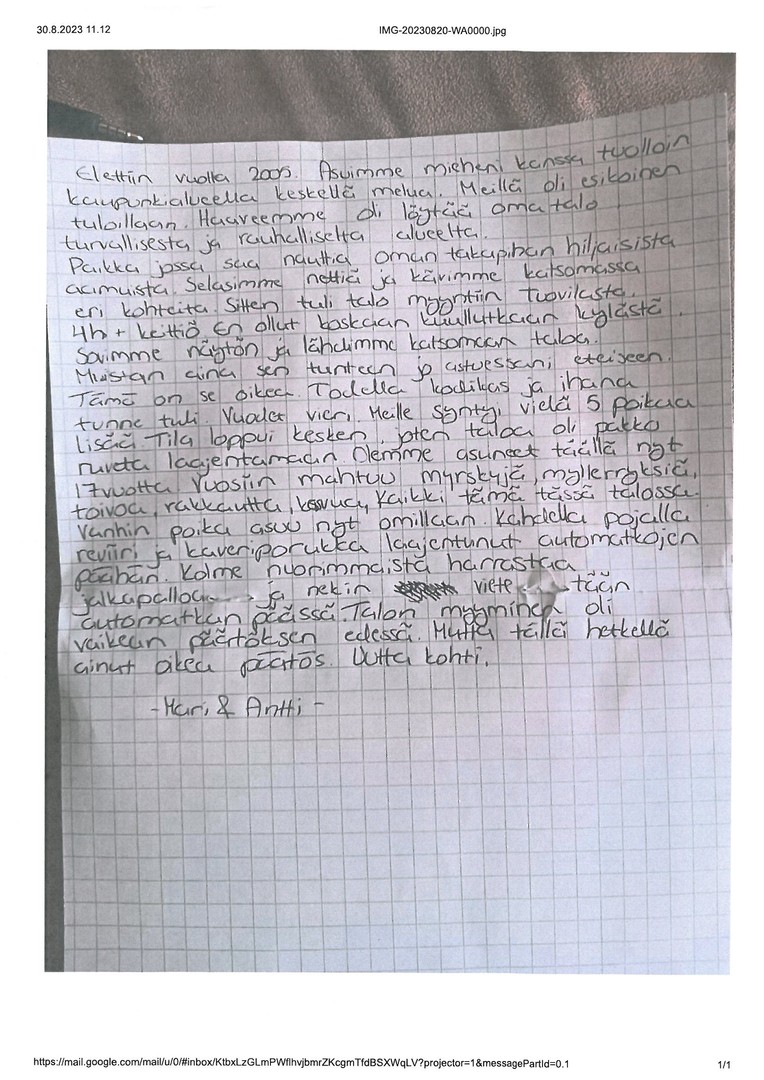 30.8.2023 11.12 IMG-20230820-WA0000.jpg
Elettiin vuotta 2005. Asuimme mieheni kanssa tuolloin
kaupunkialueella keskellä melua. Meillä oli esikoinen
tuloillaan. Haaveemme oli löytää oma talo
turvallisesta ja rauhalliselta alueelta.
Paikka jossa saa nauttia oman takapihan hiljaisista
aamuista. Selasimme nettiä ja kävimme katsomassa
eri kohteita. Sitten tuli talo myyntiin Tuovilasta.
4h + keittiö En ollut koskaan kuullutkaan kylästä.
Sovimme näytön ja lähdimme katsomaan taloa.
Muistan aina sen tunteen jo astuessani eteiseen.
Tämä on se oikea. Todella kodikas ja ihana
tunne tuli. Vuodet vieri. Meille syntyi vielä 5 poikaa
lisää Tila loppui kesken, joten taloa oli pakko
ruveta laajentamaan Olemme asuneet täällä nyt
17vuotta Vuosiin mahtuu myrskyjä, myllerryksiä,
toivoa, rakkautta, kasvua, Kaikki tämä tässä talossa.
Vanhin poika asuu nyt omillaan. Kahdella pojalla
reviiri ja kaveriporukka laajentunut automatkojen
päähän. Kolme nuorimmaista harrastaa
jalkapalloa ja nekin viete tään
automatkan päässä. Talon myyminen oli
vaikean päätöksen edessä. Mutta tällä hetkellä
ainut oikea päätös. Uutta kohti.
-Mari & Antti -
https://mail.google.com/mail/u/0/#inbox/KtbxLzGLmPWflhvjbmrZKcgmTfdBSXWqLV?projector=1&messagePartId=0.1 1/1